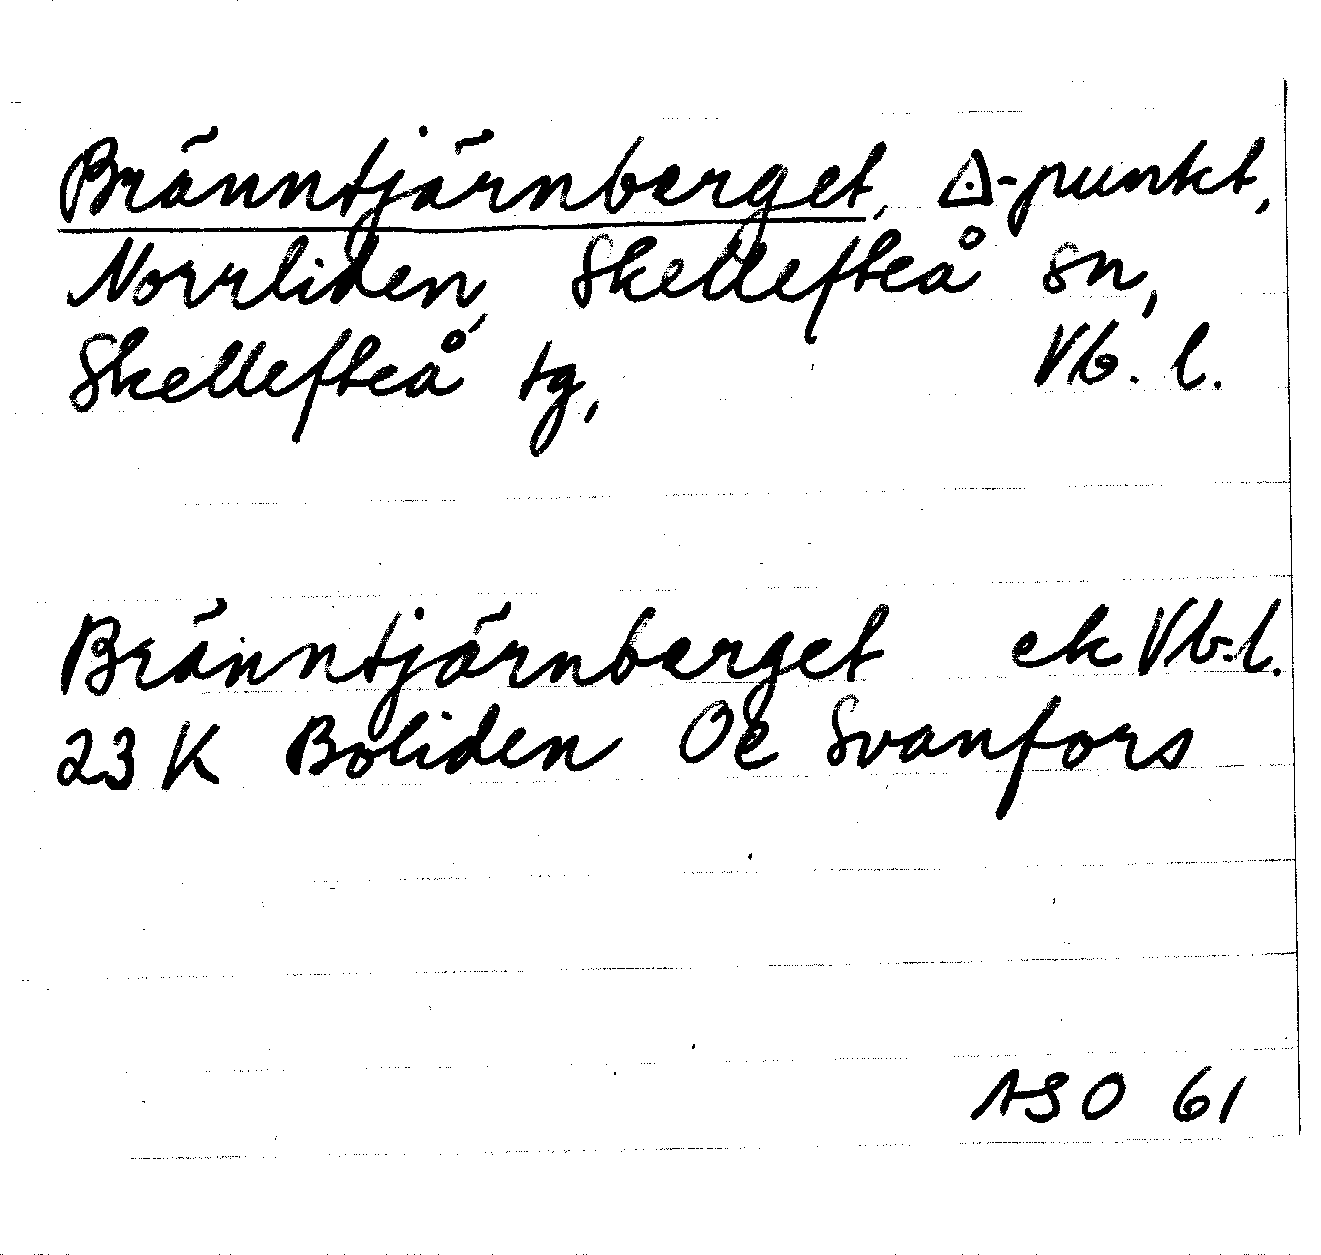 Bränntjärnberget, △-punkt,
Norrliden, Skellefteå sn,
Skellefteå tg, Vb. l.
Bränntjärnberget ek Vb.l.
23 K Boliden Oc Svanfors
ASO 61